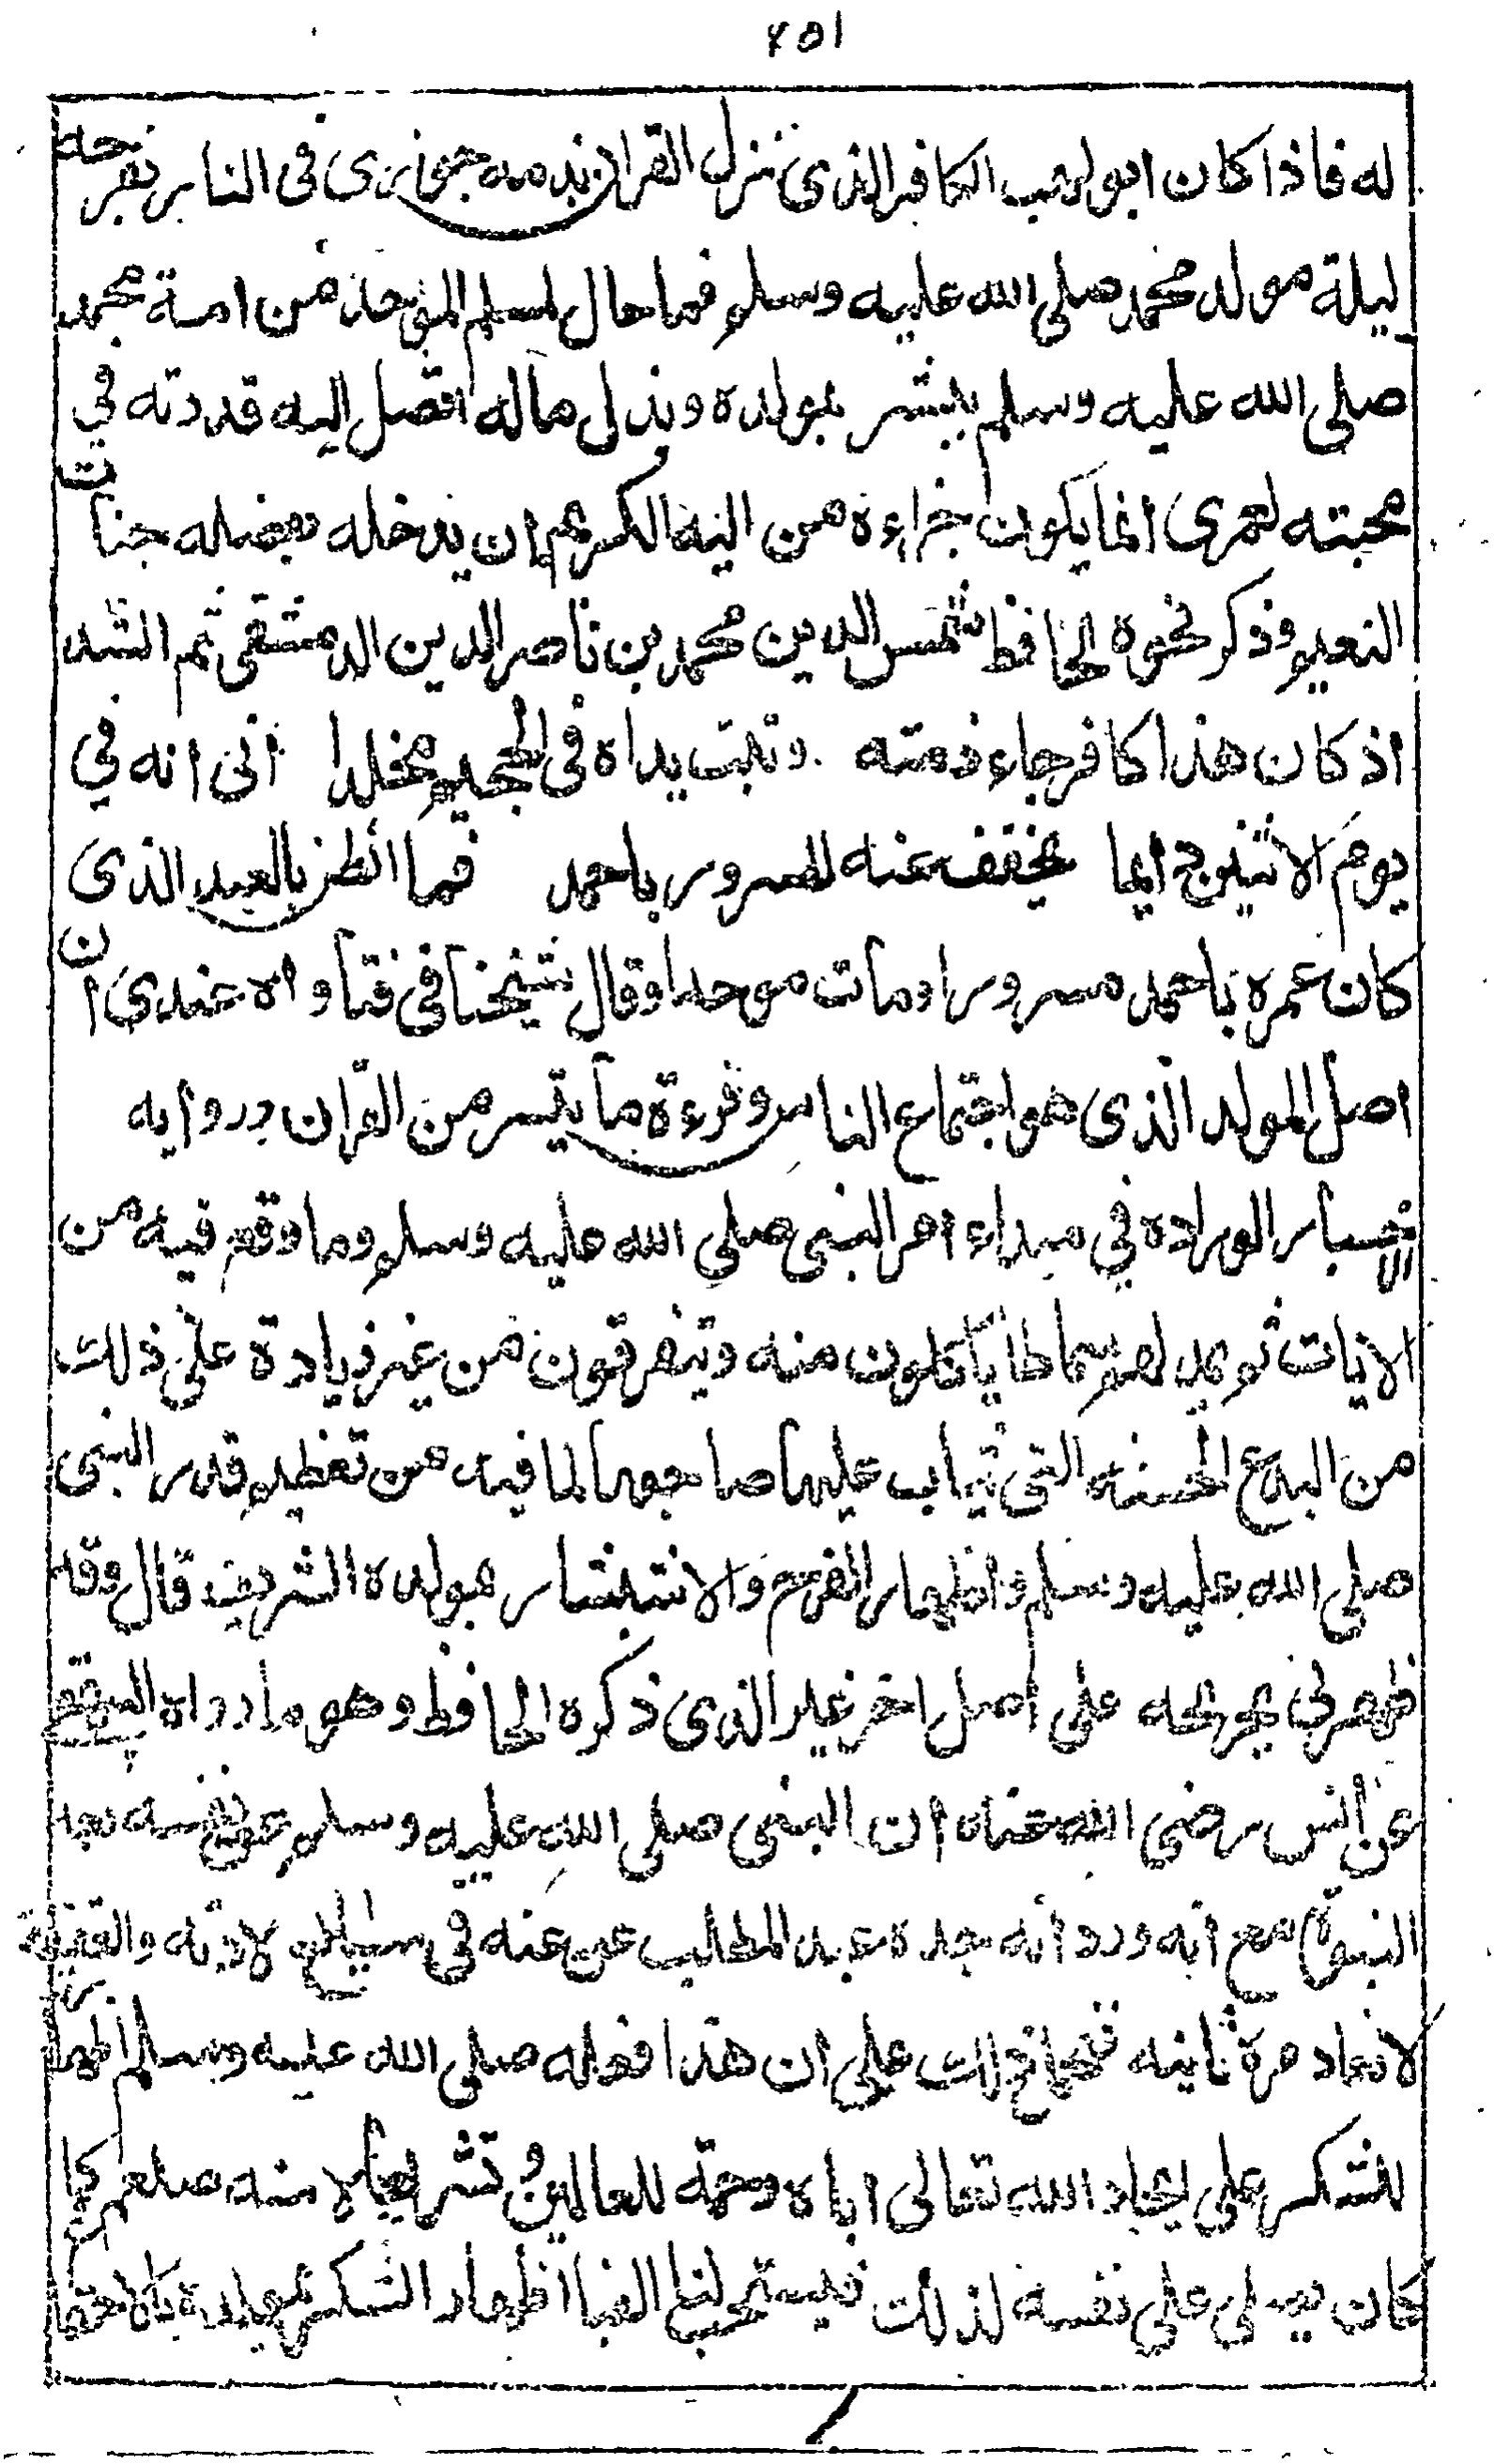 ٤٥١
له فاذا كان ابو لهب الكافر الذى نزل القران بذمه جوزى فى النار بفرحه
ليلة مولد محمد صلى الله عليه وسلم فما حال لمسلم الموحد من امة محمد
صلى الله عليه وسلم يبشر بمولده وبذل ماله اتصل اليه قدرته في
محبته لعمرى انما يكون جزاءه من الله الكريم ان يدخله بفضله جنات
النعيم وذكر نحوه الحافظ شمس الدين محمد بن ناصر الدين الدمشقى ثم انشد
اذ كان هذا كافر جاء ذمته وتبت يداه فى الجحيم مخلدا اتى انه في
يوم الاثنين دايما يخفف عنه للسرور باحمد فما الظن بالعبد الذى
كان عمره باحمد مسرورا ومات موحدا وقال شيخنا فى فتاواه عندى ان
اصل المولد الذى هو اجتماع الناس وقرءة ما يتيسر من القران وروايه
الاخبار الوراده في مبداء امر النبى صلى الله عليه وسلم وما وقع فيه من
الايات ثم يمد لهم سماطا ياكلون منه ويتفرقون من غير زيادة على ذلك
من البدع الحسنه التى يثاب عليها صاحبها لما فيه من تعظيم قدر النبى
صلى الله عليه وسلم واظهار الفرح والاستبشار بمولده الشريف قال وقد
ظهر لى تخريجه على اصل اخر غير الذى ذكره الحافظ وهو ما رواه البيهقى
عن انس رضي الله عنه ان النبى صلى الله عليه وسلم عق عن نفسه بعد
النبوة مع انه ورد انه جده عبد المطلب عق عنه فى سابع لادته والعقيقة
لا تعاد مرة ثانيه فيحمل ذلك على ان هذا فعله صلى الله عليه وسلم اظهارا
للشكر على ايجاد الله تعالى اياه رحمة للعالمين و تشريعا لامته صلعم كما
كان يصلى على نفسه لذلك فيستحب لنا ايضا اظهار الشكر بمولده بالاجتما